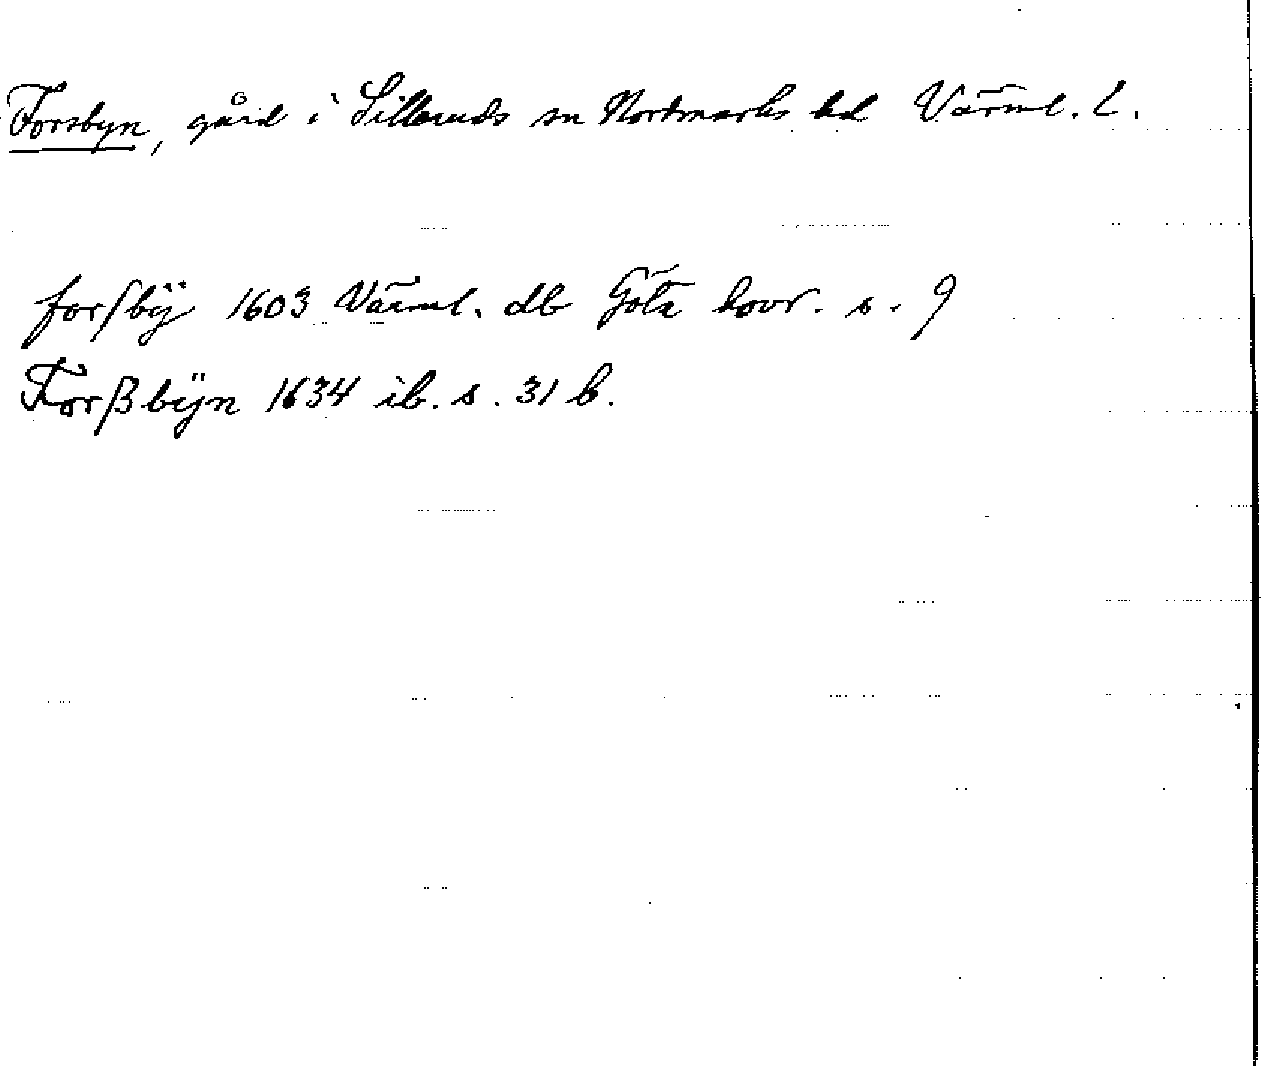 Forsbyn, gård i Silleruds sn Nordmarks hd Värml. l.
forsbÿ 1603 Värml. db Göta hovr. s. 9
Forßbÿn 1634 ib. s. 31 b.